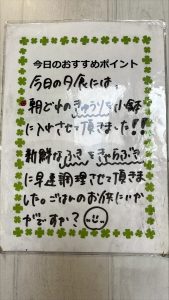 今日のおすすめポイント
今日の夕食には、
朝どれのきゅうりを小鉢
に入れさせて頂きました!!
新鮮なふきをきゃらぶき
に早速調理させて頂きま
した。ごはんのお供にいか
がですか?